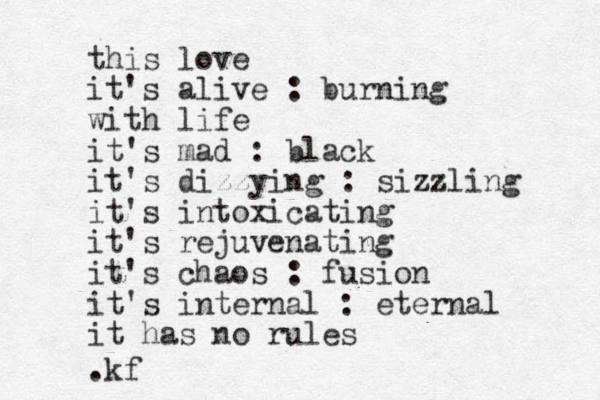 this love
it's alive : burning
with life
it's mad : black
it's dizzying : sizzling
it's intoxicating
it's rejuvenating
it's chaos : fusion
it's internal : eternal
it has no rules
.kf